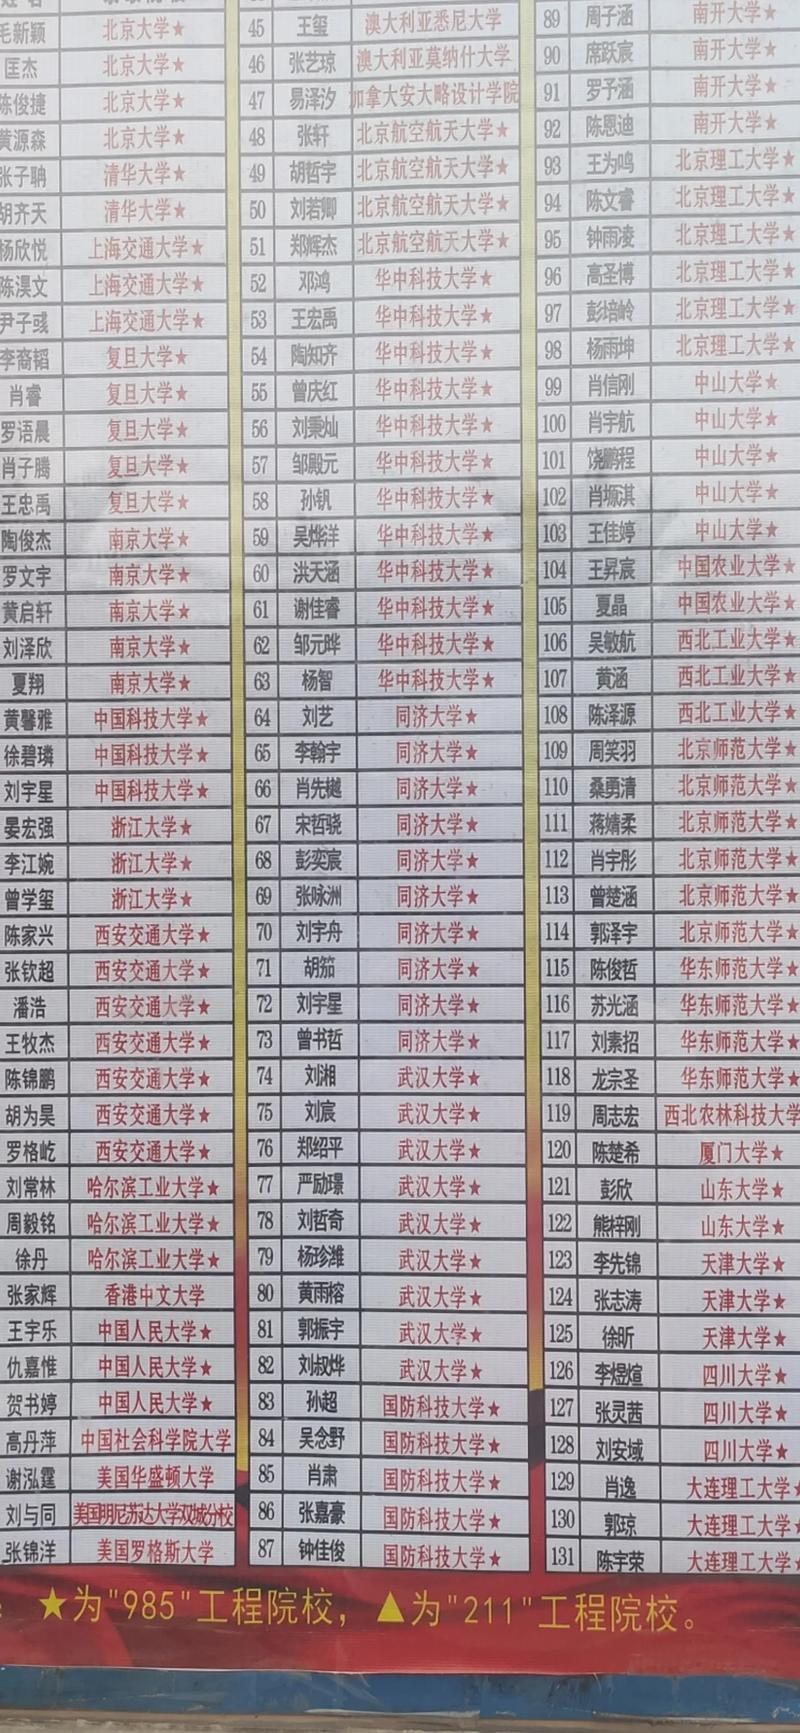 毛新颖 北京大学★
匡杰 北京大学★
陈俊捷 北京大学★
黄源森 北京大学★
张子聃 清华大学★
胡齐天 清华大学★
杨欣悦 上海交通大学★
陈淏文 上海交通大学★
尹子彧 上海交通大学★
李裔韬 复旦大学★
肖睿 复旦大学★
罗语晨 复旦大学★
肖子腾 复旦大学★
王忠禹 复旦大学★
陶俊杰 南京大学★
罗文宇 南京大学★
黄启轩 南京大学★
刘泽欣 南京大学★
夏翔 南京大学★
黄馨雅 中国科技大学★
徐碧璘 中国科技大学★
刘宇星 中国科技大学★
晏宏强 浙江大学★
李江婉 浙江大学★
曾学玺 浙江大学★
陈家兴 西安交通大学★
张钦超 西安交通大学★
潘浩 西安交通大学★
王牧杰 西安交通大学★
陈锦鹏 西安交通大学★
胡为昊 西安交通大学★
罗格屹 西安交通大学★
刘常林 哈尔滨工业大学★
周毅铭 哈尔滨工业大学★
徐丹 哈尔滨工业大学★
张家辉 香港中文大学
王宇乐 中国人民大学★
仇嘉惟 中国人民大学★
贺书婷 中国人民大学★
高丹萍 中国社会科学院大学
谢泓霆 美国华盛顿大学
刘与同 美国明尼苏达大学双城分校
张锦洋 美国罗格斯大学
45 王玺 澳大利亚悉尼大学
46 张艺琼 澳大利亚莫纳什大学
47 易泽汐 加拿大安大略设计学院
48 张轩 北京航空航天大学★
49 胡哲宇 北京航空航天大学★
50 刘若卿 北京航空航天大学★
51 郑辉杰 北京航空航天大学★
52 邓鸿 华中科技大学★
53 王宏禹 华中科技大学★
54 陶知齐 华中科技大学★
55 曾庆红 华中科技大学★
56 刘秉灿 华中科技大学★
57 邹殿元 华中科技大学★
58 孙钒 华中科技大学★
59 吴烨洋 华中科技大学★
60 洪天涵 华中科技大学★
61 谢佳睿 华中科技大学★
62 邹元晔 华中科技大学★
63 杨智 华中科技大学★
64 刘艺 同济大学★
65 李翰宇 同济大学★
66 肖先樾 同济大学★
67 宋哲骁 同济大学★
68 彭奕宸 同济大学★
69 张咏洲 同济大学★
70 刘宇舟 同济大学★
71 胡笳 同济大学★
72 刘宇星 同济大学★
73 曾书哲 同济大学★
74 刘湘 武汉大学★
75 刘宸 武汉大学★
76 郑绍平 武汉大学★
77 严励璟 武汉大学★
78 刘哲奇 武汉大学★
79 杨珍潍 武汉大学★
80 黄雨榕 武汉大学★
81 郭振宇 武汉大学★
82 刘叔烨 武汉大学★
83 孙超 国防科技大学★
84 吴念野 国防科技大学★
85 肖肃 国防科技大学★
86 张嘉豪 国防科技大学★
87 钟佳俊 国防科技大学★
89 周子涵 南开大学★
90 席跃宸 南开大学★
91 罗予涵 南开大学★
92 陈恩迪 南开大学★
93 王为鸣 北京理工大学★
94 陈文睿 北京理工大学★
95 钟雨凌 北京理工大学★
96 高圣博 北京理工大学★
97 彭培岭 北京理工大学★
98 杨雨坤 北京理工大学★
99 肖信刚 中山大学★
100 肖宇航 中山大学★
101 饶鹏程 中山大学★
102 肖塬淇 中山大学★
103 王佳婷 中山大学★
104 王昇宸 中国农业大学★
105 夏晶 中国农业大学★
106 吴敏航 西北工业大学★
107 黄涵 西北工业大学★
108 陈泽源 西北工业大学★
109 周笑羽 北京师范大学★
110 桑勇清 北京师范大学★
111 蒋婧柔 北京师范大学★
112 肖宇彤 北京师范大学★
113 曾楚涵 北京师范大学★
114 郭泽宇 北京师范大学★
115 陈俊哲 华东师范大学★
116 苏光涵 华东师范大学★
117 刘素招 华东师范大学★
118 龙宗圣 华东师范大学★
119 周志宏 西北农林科技大学
120 陈楚希 厦门大学★
121 彭欣 山东大学★
122 熊梓刚 山东大学★
123 李先锦 天津大学★
124 张志涛 天津大学★
125 徐昕 天津大学★
126 李煜煊 四川大学★
127 张灵茜 四川大学★
128 刘安域 四川大学★
129 肖逸 大连理工大学★
130 郭琼 大连理工大学★
131 陈宇荣 大连理工大学★
★为"985"工程院校，▲为"211"工程院校。